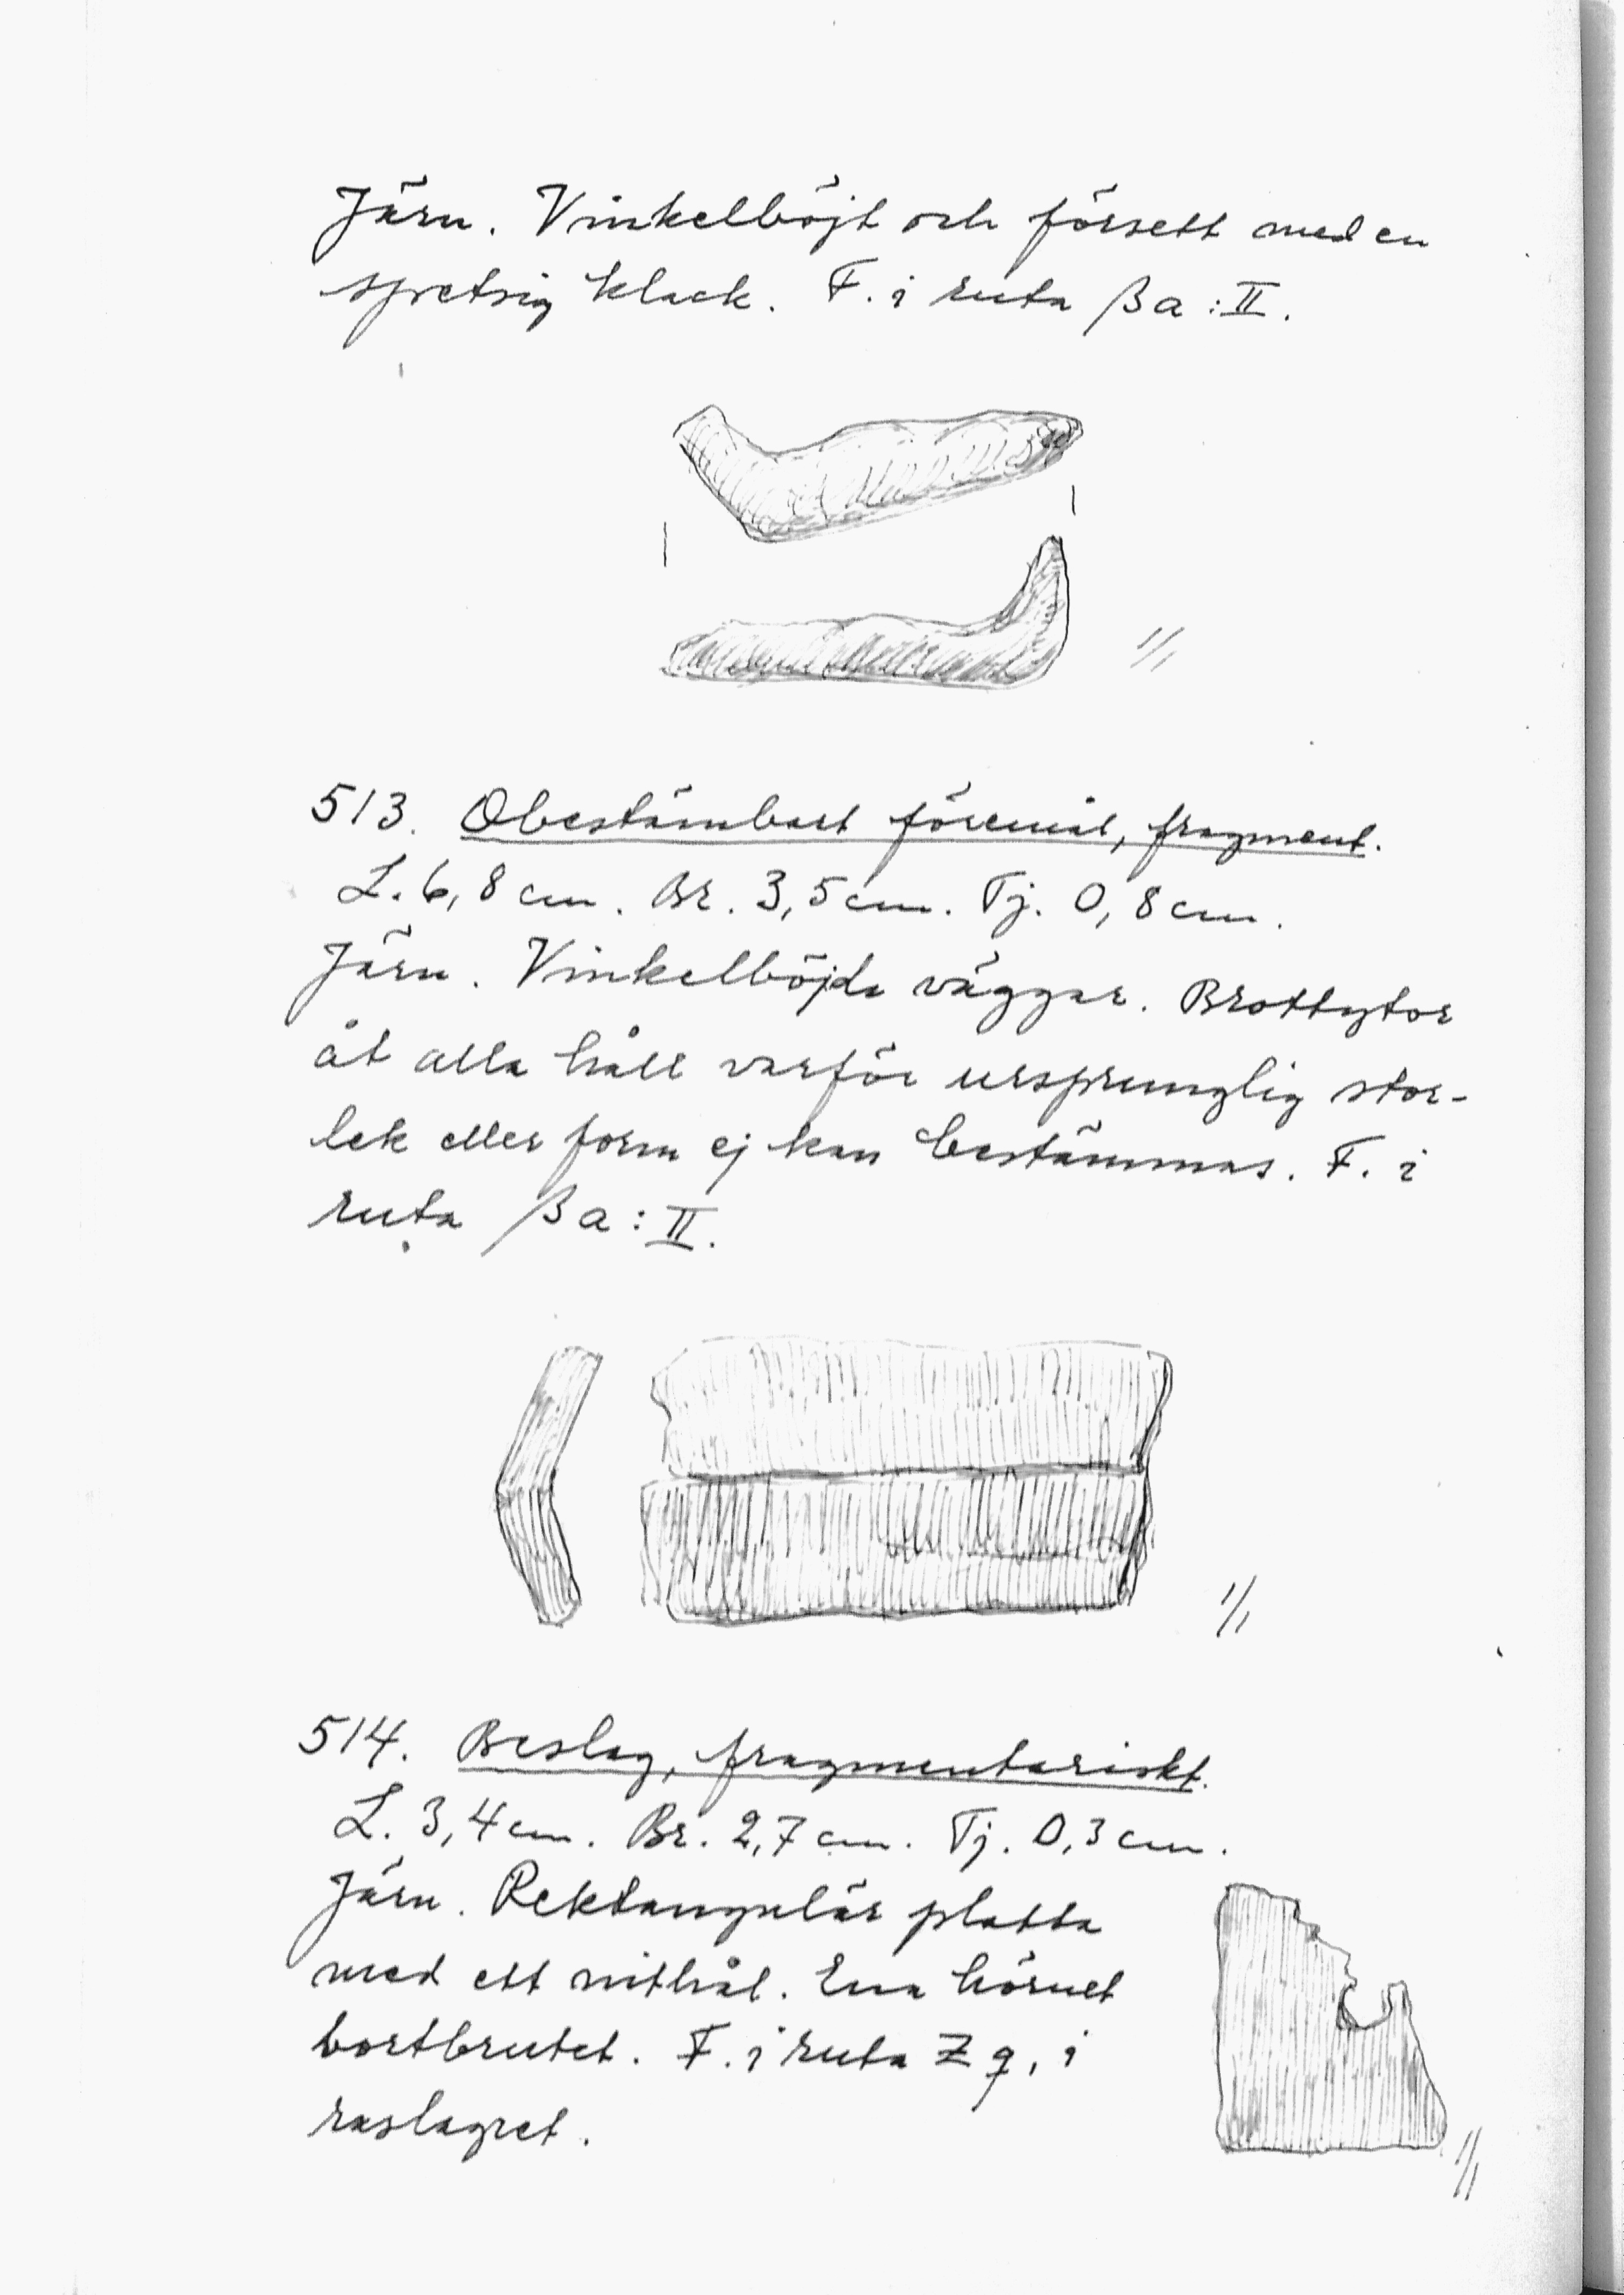 Järn. Vinkelböjt och försett med en
spetsig klack. F. i ruta βa:II.
1/1
513. Obestämbart föremål, fragment.
L. 6,8 cm. Br. 3,5 cm. Tj. 0,8 cm.
Järn. Vinkelböjda väggar. Brottytor
åt alla håll varför ursprunglig stor-
lek eller form ej kan bestämmas. F. i
ruta βa:II.
1/1
514. Beslag, fragmentariskt.
L. 3,4 cm. Br. 2,7 cm. Tj. 0,3 cm.
Järn. Rektangulär platta
med ett nithål. Ena hörnet
bortbrutet. F. i ruta Zq, i
raslagret.
1/1